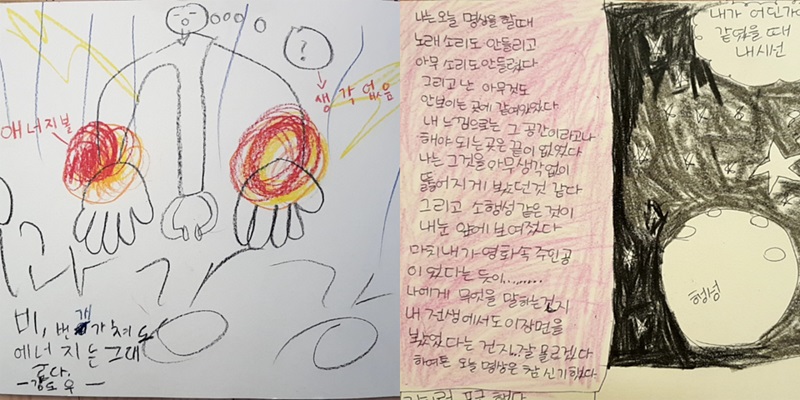 ?
생각없음
애너지볼
비, 번개가 쳐도
에너지는 그대
로다.
나는 오늘 명상을 할때
노래 소리도 안들리고
아무 소리도 안들렸다
그리고 난 아무것도
안보이는 곳에 갇여있었다
내 눈 앞으로는 그 공간이라고나
해야 되는 곳은 끝이 없었다
나는 그것을 아무생각 없이
뚫어지게 보았던것 같다
그리고 소형성 같은 것이
내 눈 앞에 보여졌다
마치 내가 영화속 주인공
이 었다는 듯이.........
나에게 무엇을 말하는건지
내 전생에서도 이장면을
보았었다는 건지..잘 모르겠다
하여튼 오늘 명상은 참 신기했다.
내가 어딘가에
갇혔을 때
내 시선
형성